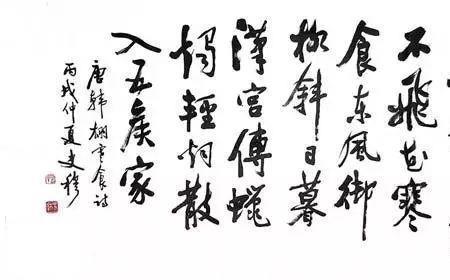 不飛花寒
食東風御
柳斜日暮
漢宮傳蠟
燭輕烟散
入五侯家
唐韓翃寒食詩
丙戌仲夏史穆